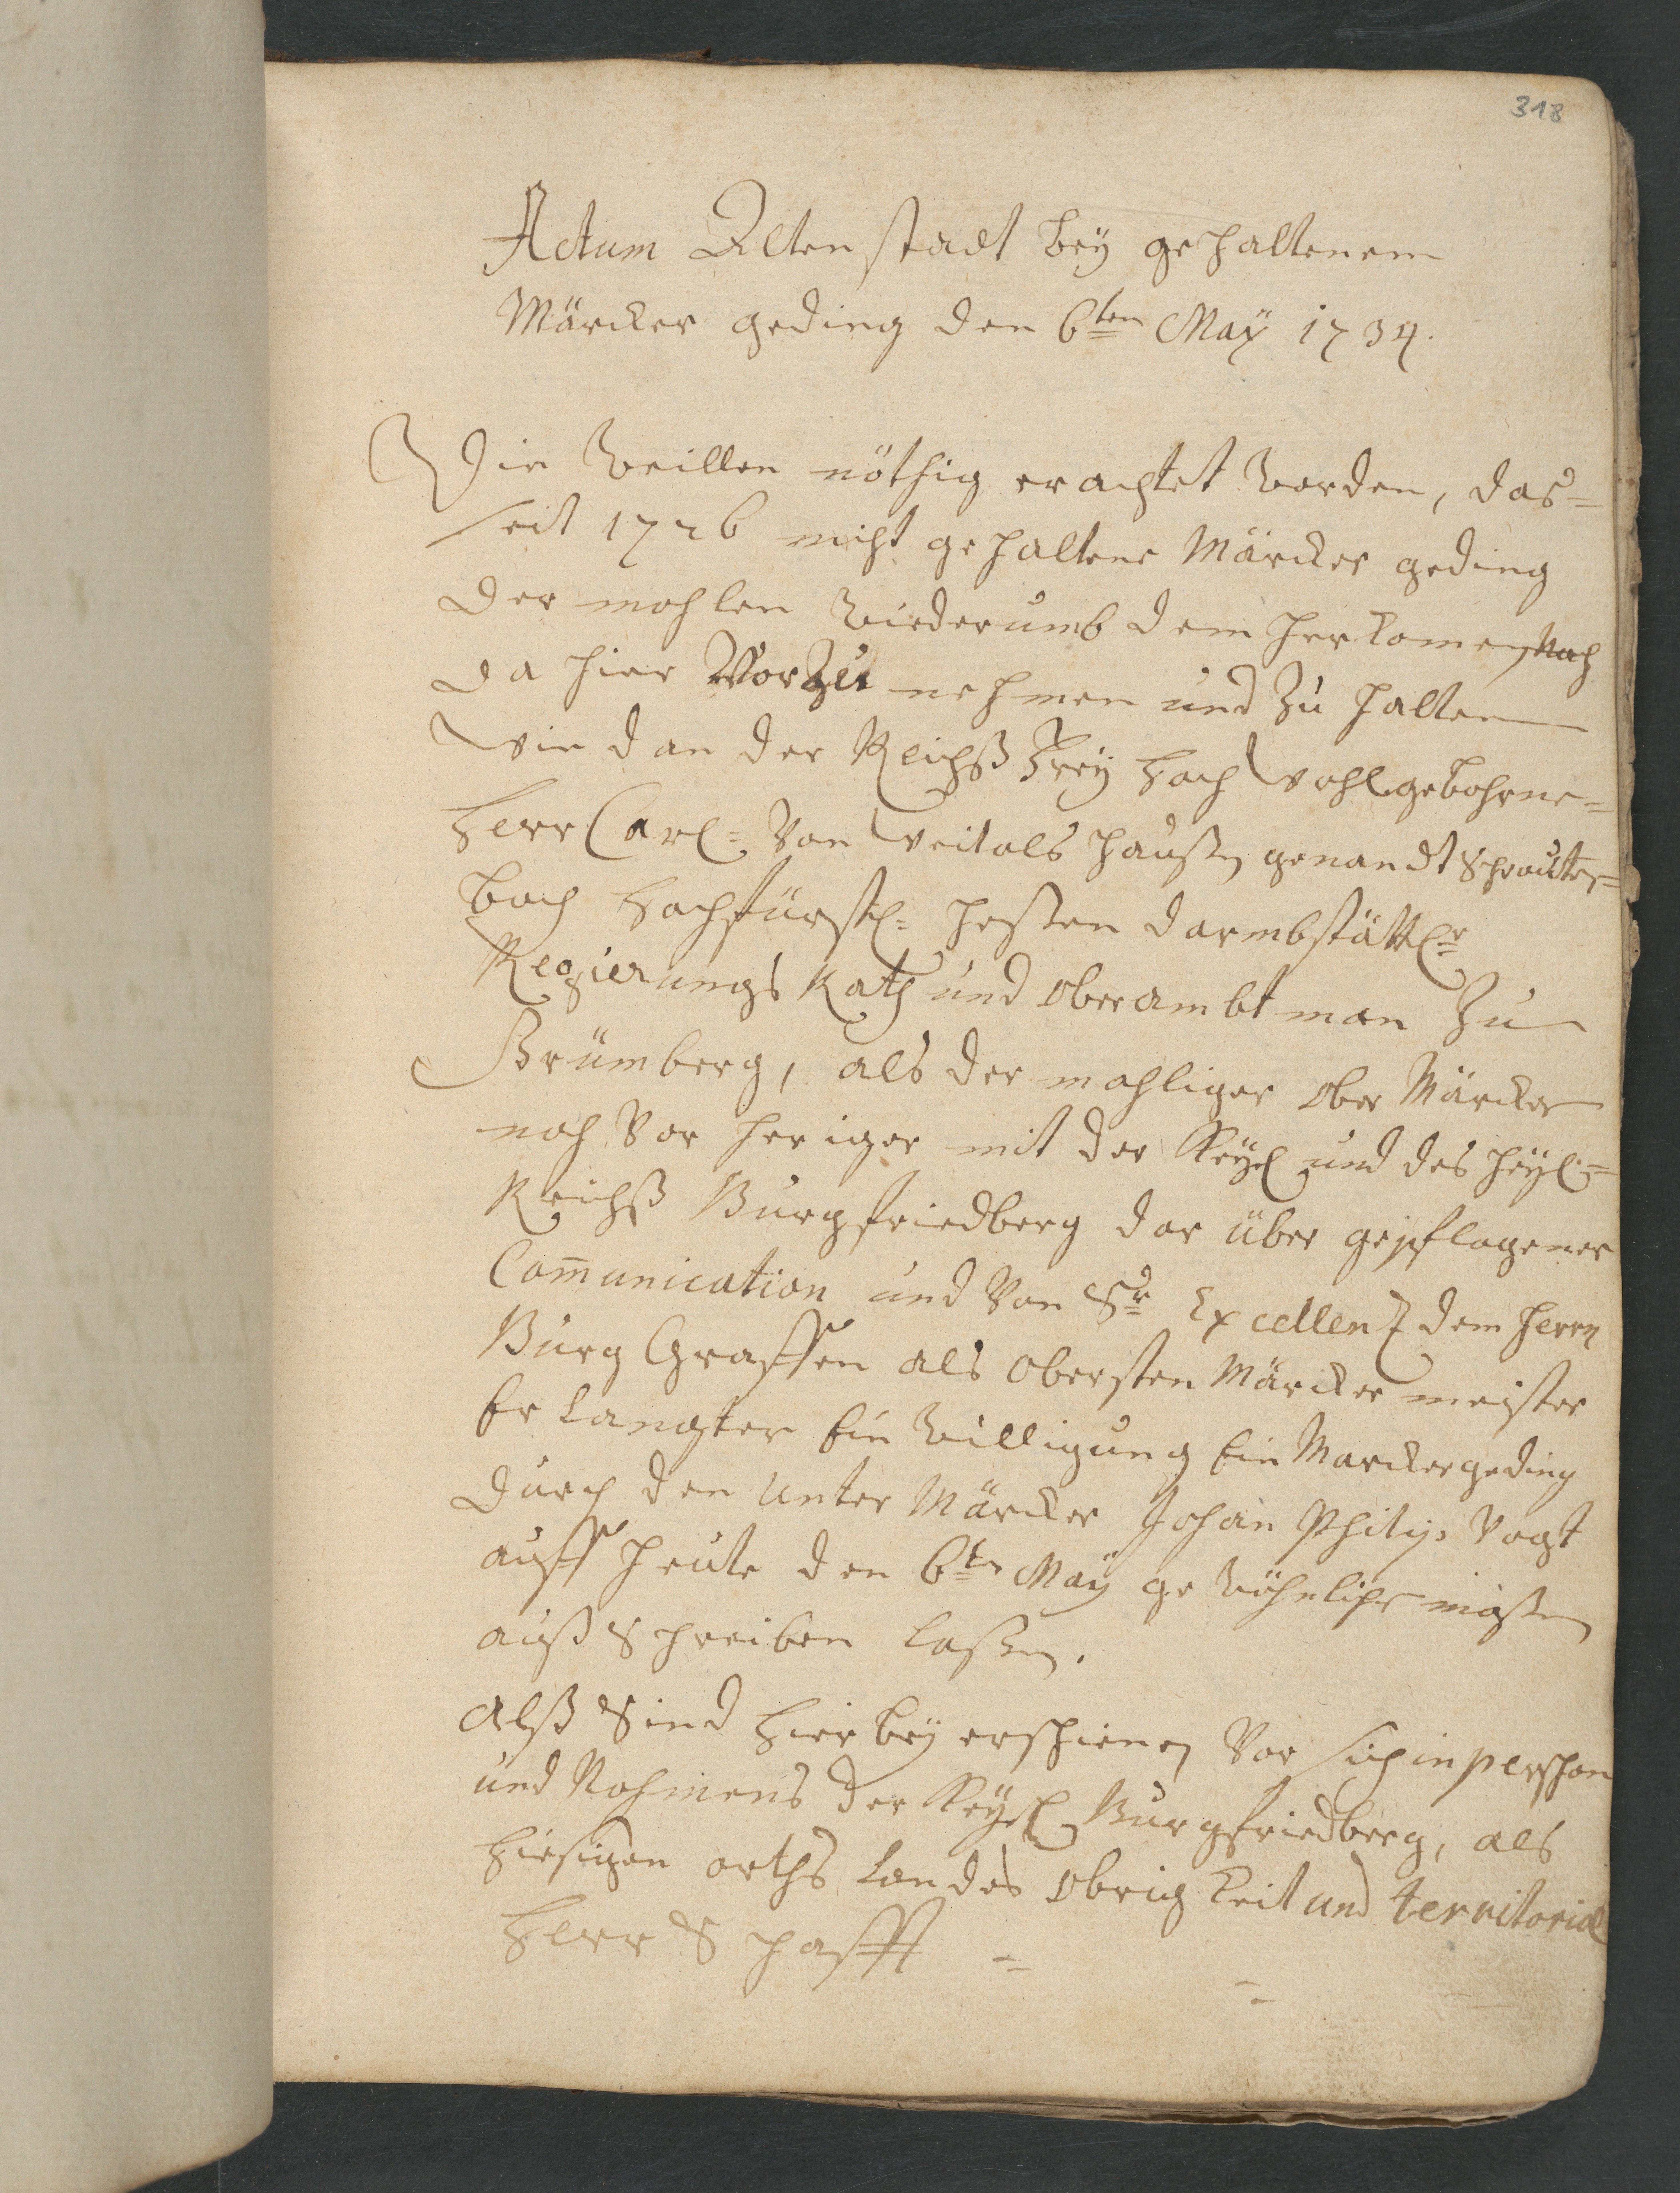 318
Actum Altenstadt bey gehaltenem
Märcker geding den 6ten May 1734.
Die Weillen nöthig erachtet worden, das=
seit 1726 nicht gehaltene Märcker geding
der mahlen wiederumb dem herkomen nach
da hier Vorzu nehmen und zu halten
wie dan der Reichß Frey Hoch wohlgebohrne=
Herr Carl= von Weitolshaußen genandt Schrauten=
bach Hochfürstl= heßen darmbstättlr
Regierungs Rath und Oberambtman zu
Grümberg, als der mahliger Ober Märcker
nach vor heriger mit der Keyl und des heyl=
Reichß Burgfriedberg dar über gepflogener
Com̄unication und von Sr Excellentz dem herrn
Burg Graffen als Obersten Märcker meister
Erlangter Einwilligung Ein Marckergeding
durch den Unter Märcker Johan Philips Vogt
auff heute den 6ten May gewöhnlicher maßen
auß Schreiben laßen.
Alß Sind hier bey erschienen vor sich in pershon
und Nahmens der Keyl Burgfriedberg, als
hiesigen orths Landes Obrigkeit und territorial
Herr Schafft =